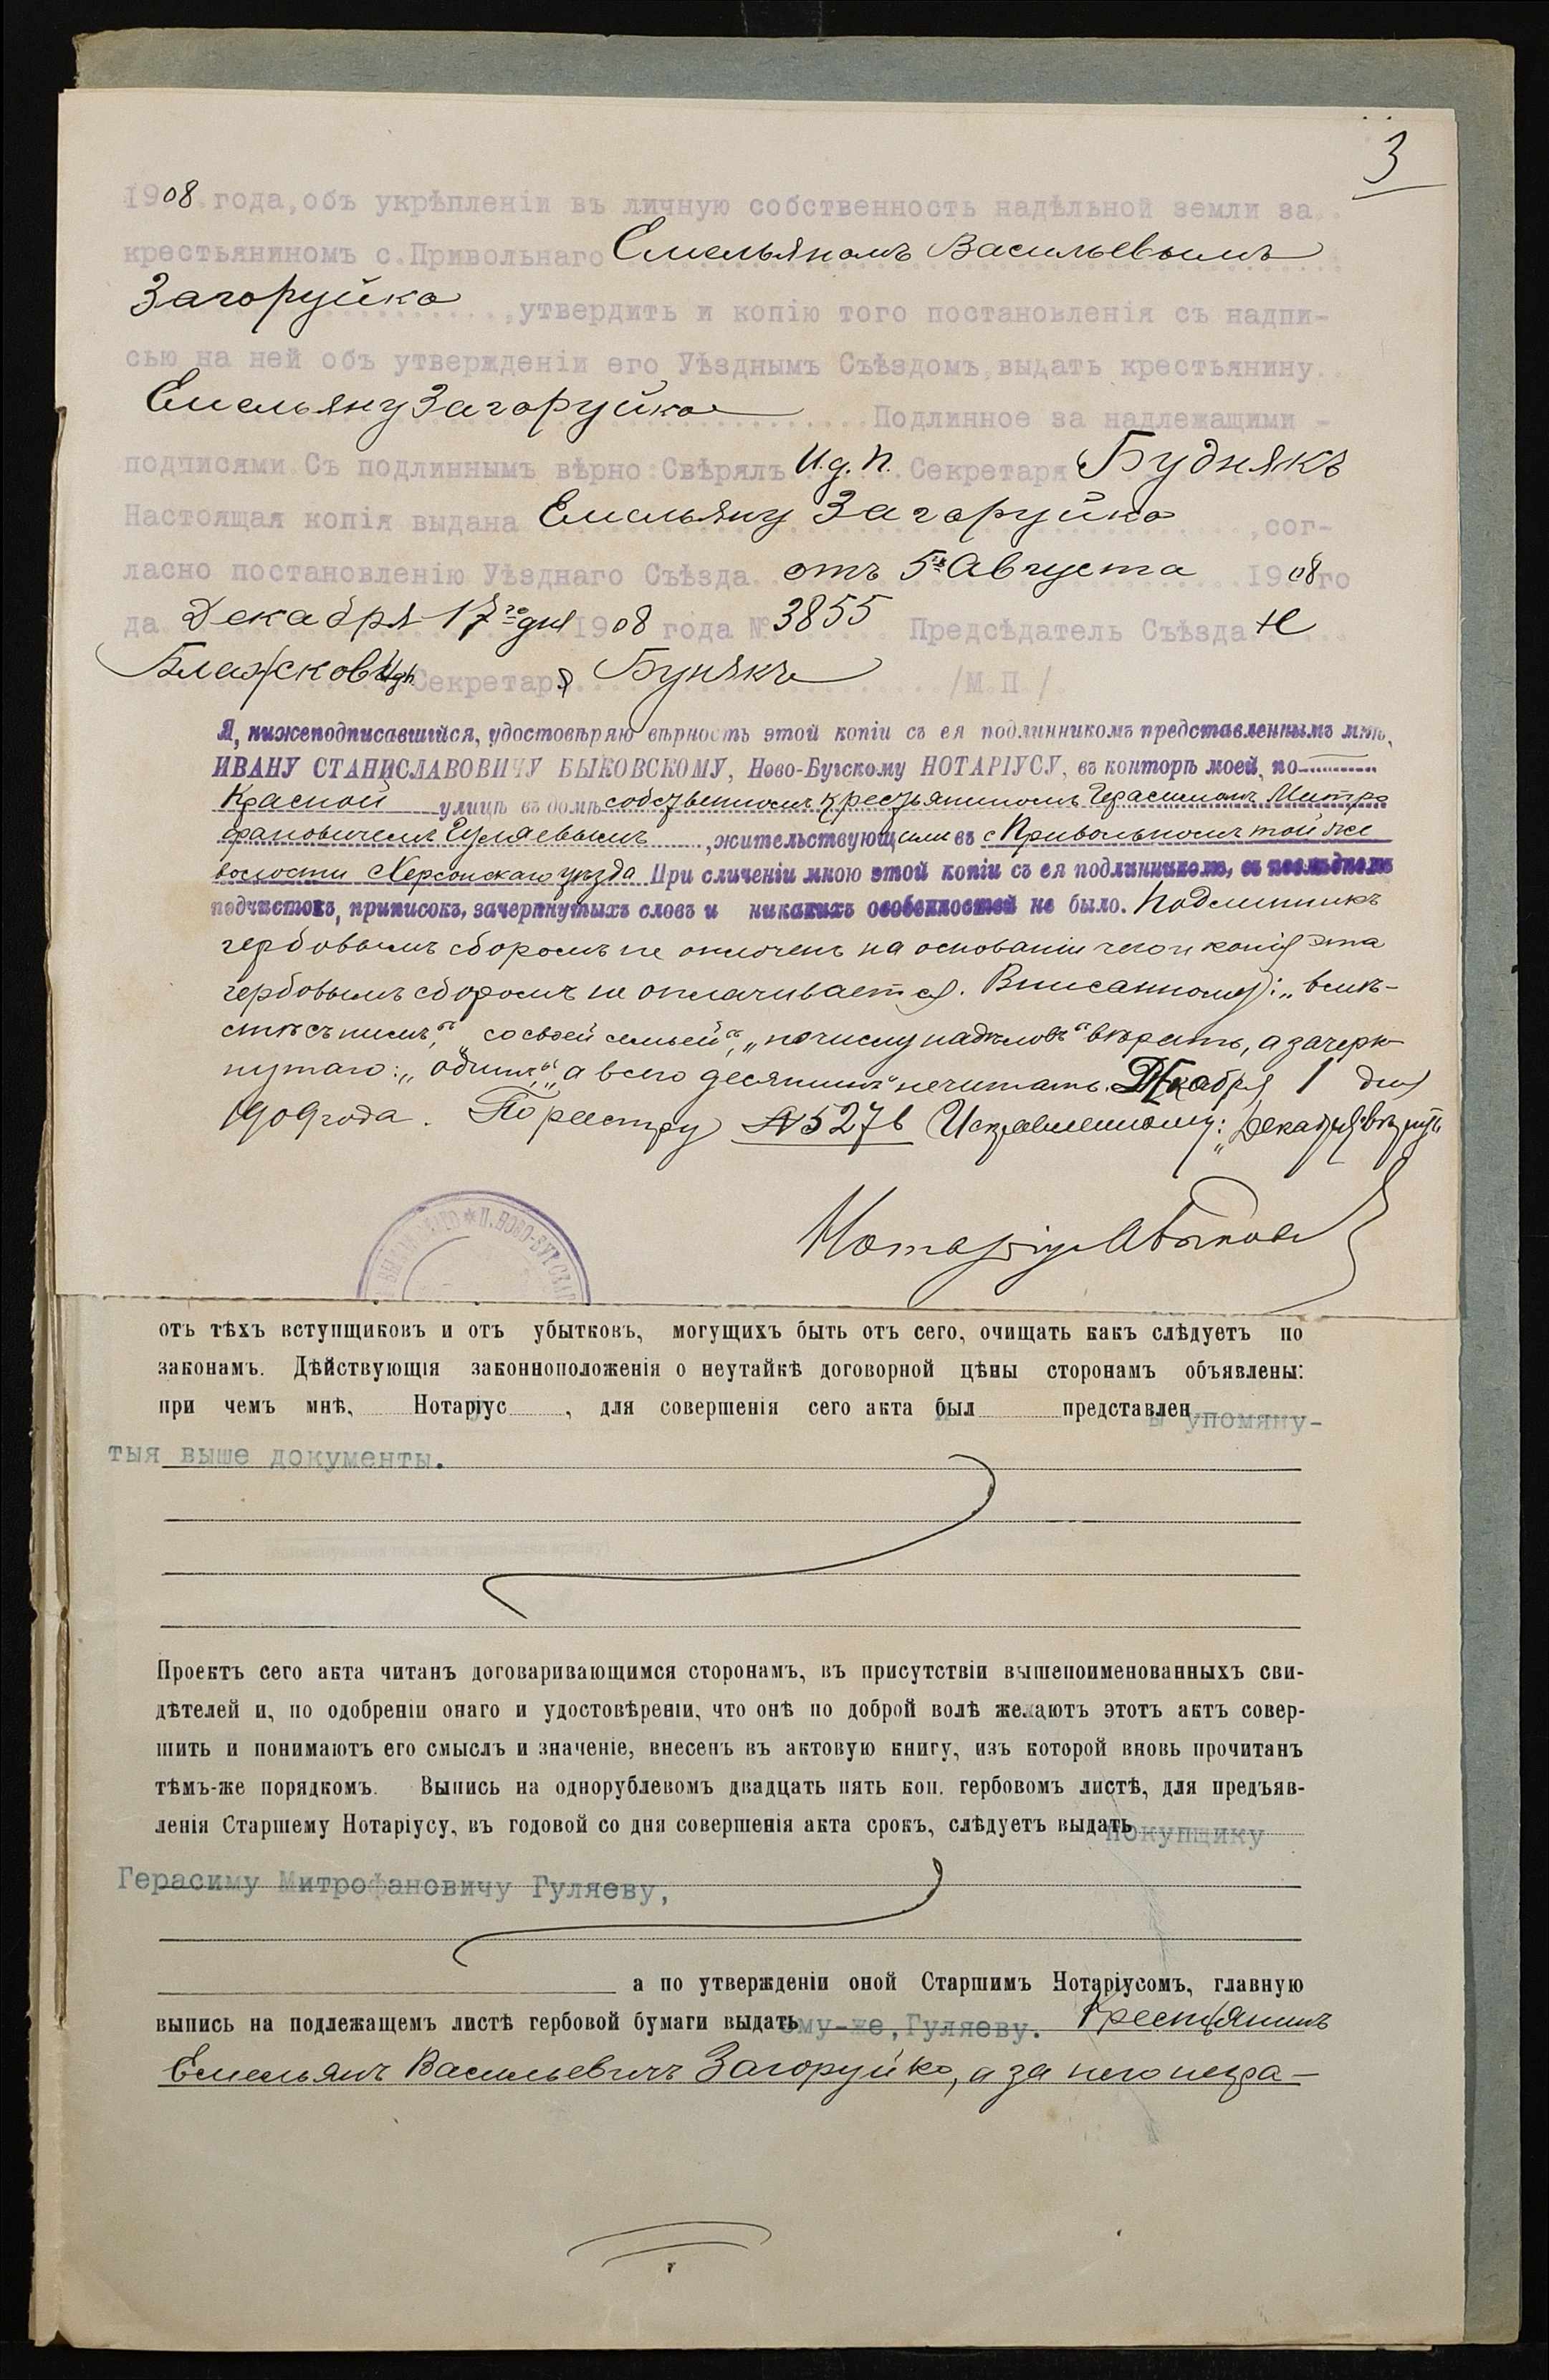 3
1908 года, объ укрѣпленіи въ личную собственность надѣльной земли за
крестьяниномъ с. Привольнаго Емельяномъ Васильевымъ
Загоруйко, утвердить и копію того постановленія съ надпи-
сью на ней объ утвержденіи его Уѣзднымъ Съѣздомъ, выдать крестьянину
Емельяну Загоруйко Подлинное за надлежащими -
подписями. Съ подлиннымъ вѣрно: Свѣрялъ И.д.п. Секретаря Буднякъ
Настоящая копія выдана Емельяну Загоруйко, сог-
ласно постановленію Уѣзднаго Съѣзда отъ 5го Августа 1908 го
да Декабря 17го дня 1908 года № 3855 Предсѣдатель Съѣзда Н
Секретаря /М.П./
Я, нижеподписавшійся, удостовѣряю вѣрность этой копіи съ ея подлинникомъ представленнымъ мнѣ,
ИВАНУ СТАНИСЛАВОВИЧУ БЫКОВСКОМУ, Ново-Бугскому НОТАРІУСУ, въ конторѣ моей, по
Красной улицѣ въ домѣ собственномъ крестьяниномъ Герасимомъ Митро
фановичемъ Гуляевымъ, жительствующимъ въ с Привольномъ той же
волости Херсонскаго уѣзда При сличеніи мною этой копіи съ ея подлинникомъ, въ послѣднемъ
подчистокъ, приписокъ, зачеркнутыхъ словъ и никакихъ особенностей не было. Подлинникъ
гербовымъ сборомъ не оплоченъ на основаніи чего и копія эта
гербовымъ сборомъ не оплачивается. Вписанному: „вмѣ-
стѣ съ нимъ“, „со своей семьей“, „по числу надѣловъ“ вѣрить, а зачерк
нутаго: „одинъ“, „а всего десятинъ“ не читать. Декабря 1 дня
1909 года. По реестру № 5276 Исправленному: „Декабря“ вѣрить
Нотаріусъ Быковскій
отъ тѣхъ вступщиковъ и отъ убытковъ, могущихъ быть отъ сего, очищать какъ слѣдуетъ по
законамъ. Дѣйствующія законноположенія о неутайкѣ договорной цѣны сторонамъ объявлены:
при чемъ мнѣ, Нотаріусу, для совершенія сего акта были представлены упомяну-
тыя выше документы.
Проектъ сего акта читанъ договаривающимся сторонамъ, въ присутствіи вышепоименованныхъ сви-
дѣтелей и, по одобреніи онаго и удостовѣреніи, что онѣ по доброй волѣ желаютъ этотъ актъ совер-
шить и понимаютъ его смыслъ и значеніе, внесенъ въ актовую книгу, изъ которой вновь прочитанъ
тѣмъ-же порядкомъ. Выпись на однорублевомъ двадцать пять коп. гербовомъ листѣ, для предъяв-
ленія Старшему Нотаріусу, въ годовой со дня совершенія акта срокъ, слѣдуетъ выдать покупщику
Герасиму Митрофановичу Гуляеву,
а по утвержденіи оной Старшимъ Нотаріусомъ, главную
выпись на подлежащемъ листѣ гербовой бумаги выдать ему-же, Гуляеву. Крестьянинъ
Емельянъ Васильевичъ Загоруйко, а за него негра-